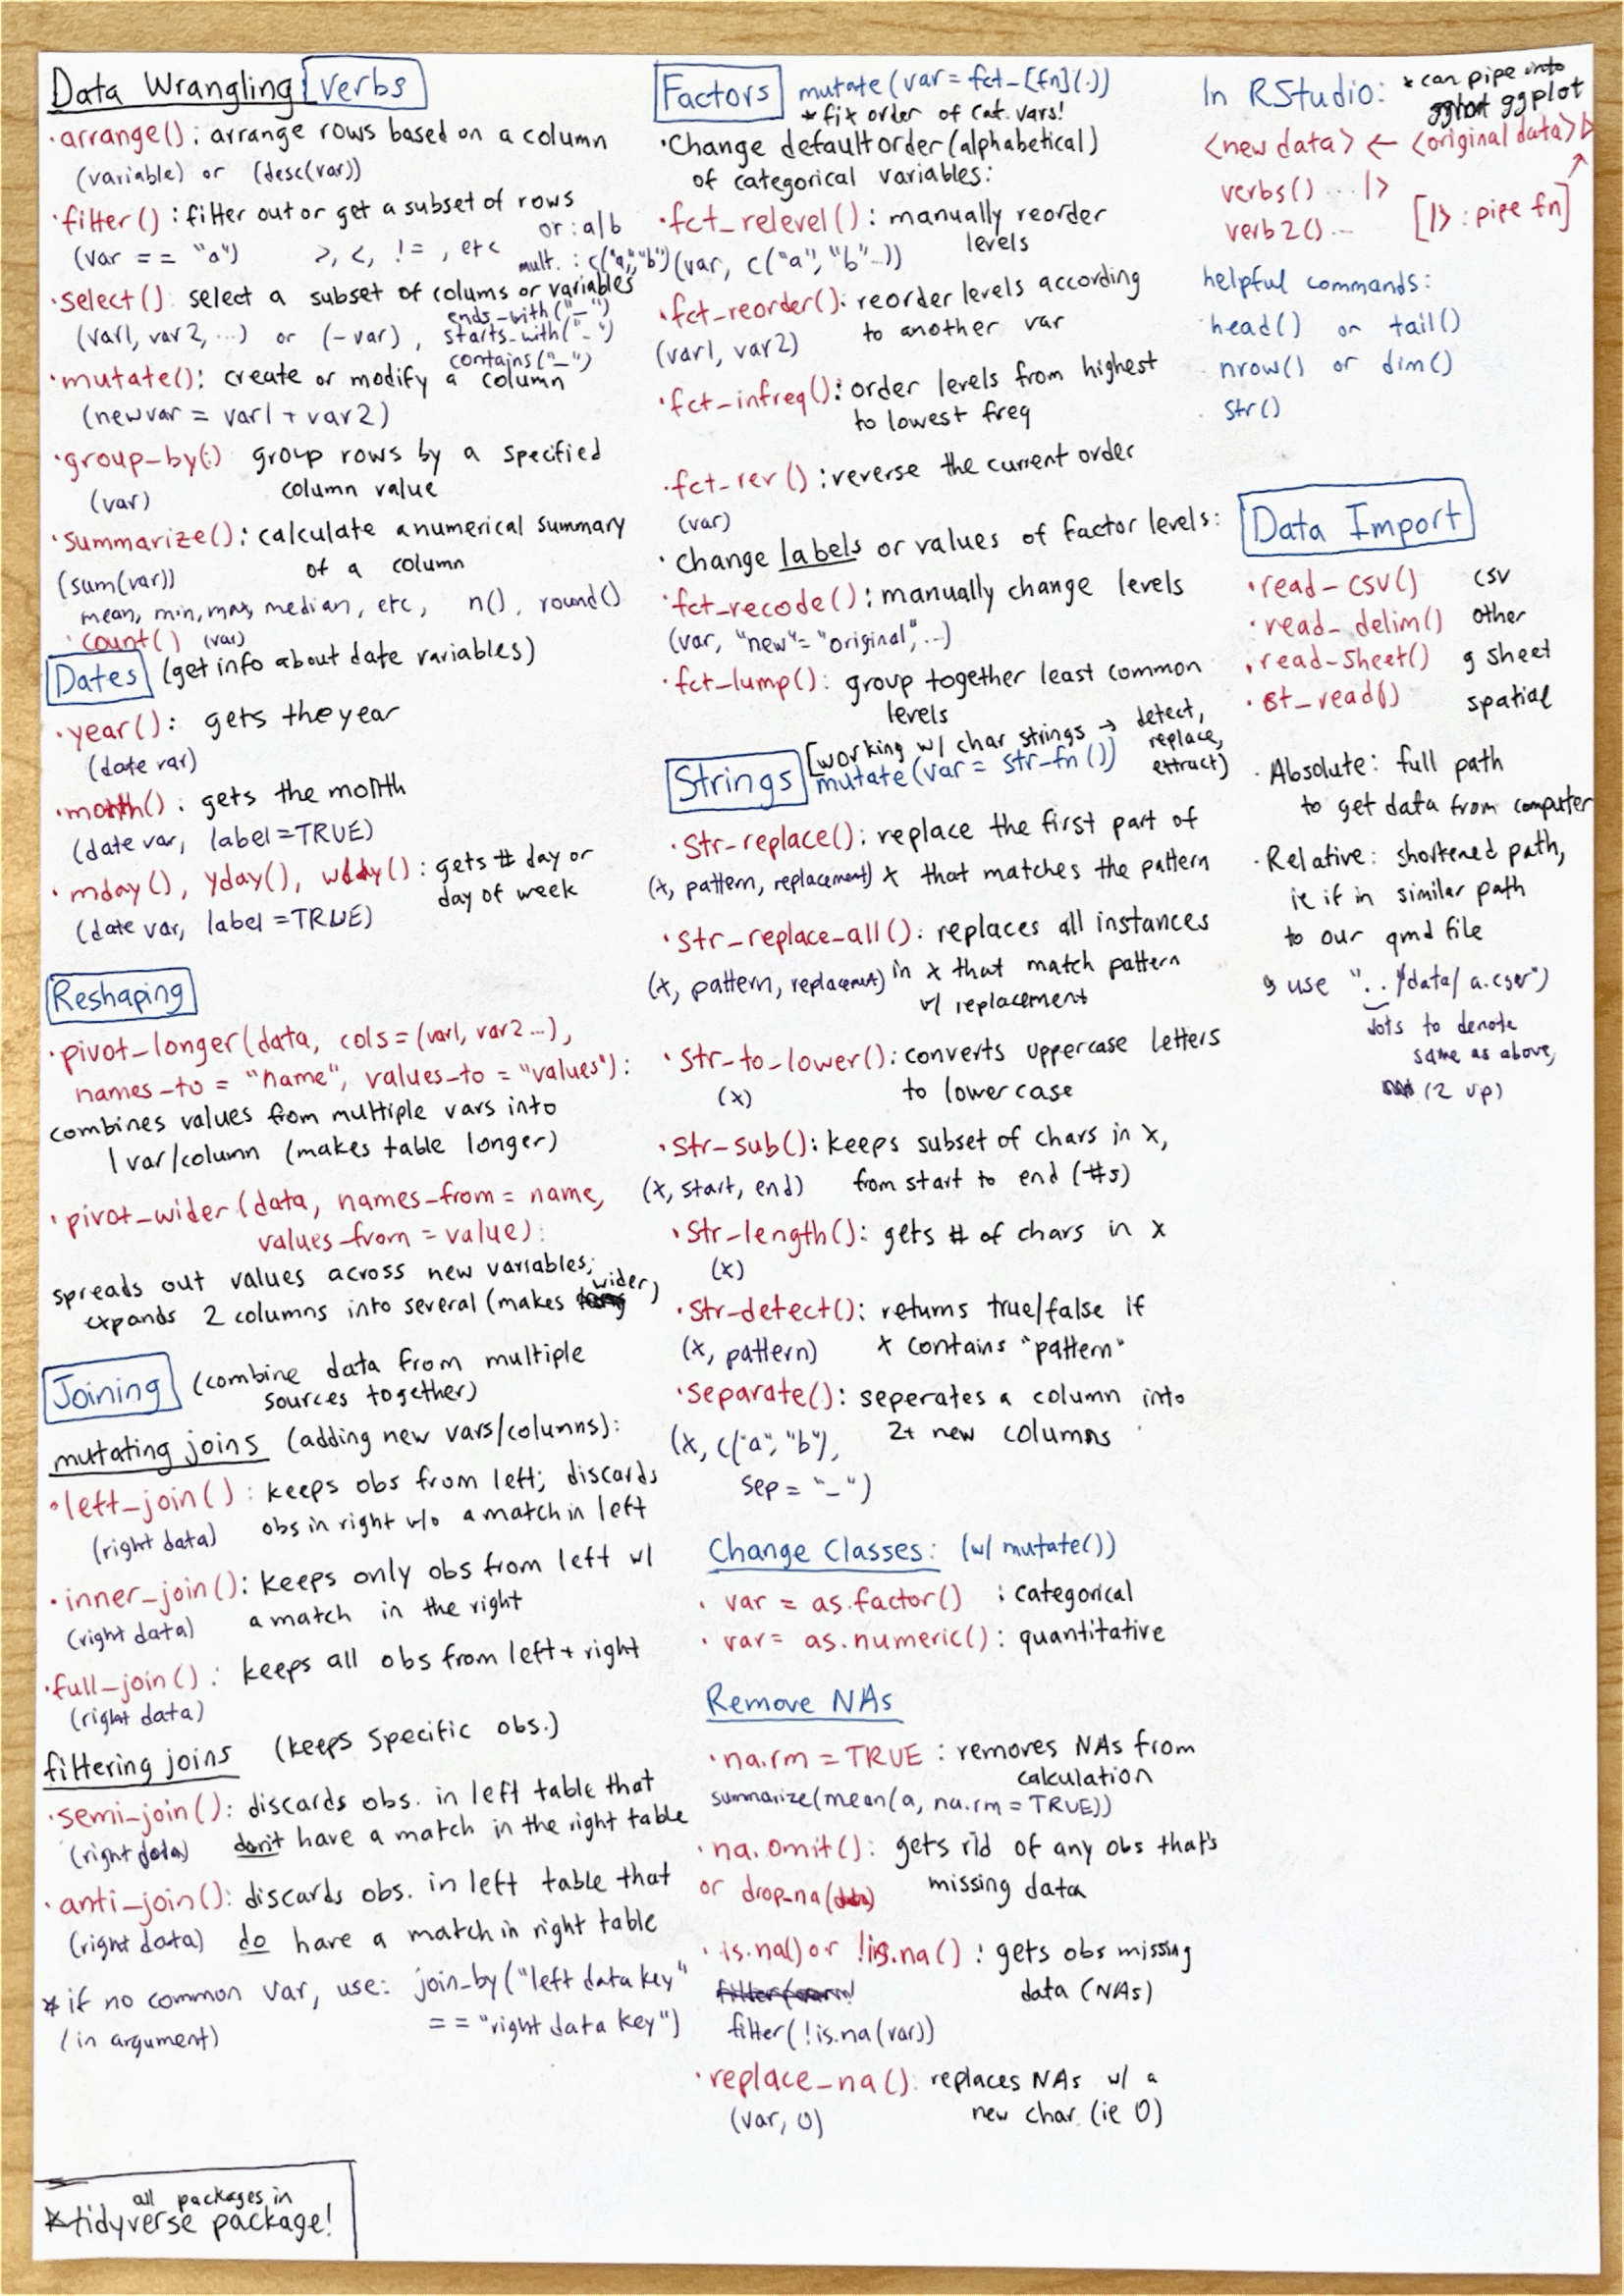 Data Wrangling verbs
· arrange(): arrange rows based on a column
(variable) or (desc(var))
· filter(): filter out or get a subset of rows
or: a|b
(var == "a") >, <, !=, etc mult.: c("a","b")
· select(): select a subset of colums or variables
ends_with("_")
(var1, var2, ...) or (-var), starts_with("_")
contains("_")
· mutate(): create or modify a column
(newvar = var1 + var2)
· group_by(): group rows by a specified
(var) column value
· summarize(): calculate a numerical summary
(sum(var)) of a column
mean, min, max, median, etc, n(), round()
· count() (var)
Dates (get info about date variables)
· year(): gets the year
(date var)
· month(): gets the month
(date var, label = TRUE)
· mday(), yday(), wday(): gets # day or
day of week
(date var, label = TRUE)
Reshaping
· pivot_longer(data, cols = (var1, var2...),
names_to = "name", values_to = "values"):
combines values from multiple vars into
1 var/column (makes table longer)
· pivot_wider(data, names_from = name,
values_from = value):
spreads out values across new variables;
expands 2 columns into several (makes wider)
Joining (combine data from multiple
sources together)
mutating joins (adding new vars/columns):
· left_join(): keeps obs from left; discards
(right data) obs in right w/o a match in left
· inner_join(): keeps only obs from left w/
(right data) a match in the right
· full_join(): keeps all obs from left + right
(right data)
filtering joins (keeps specific obs.)
· semi_join(): discards obs. in left table that
(right data) don't have a match in the right table
· anti_join(): discards obs. in left table that
(right data) do have a match in right table
* if no common var, use: join_by("left data key"
(in argument) == "right data key")
* all packages in
tidyverse package!
Factors mutate(var = fct_[fn](.))
* fix order of cat. vars!
· Change default order (alphabetical)
of categorical variables:
· fct_relevel(): manually reorder
levels
(var, c("a", "b"...))
· fct_reorder(): reorder levels according
(var1, var2) to another var
· fct_infreq(): order levels from highest
to lowest freq
· fct_rev(): reverse the current order
(var)
· change labels or values of factor levels:
· fct_recode(): manually change levels
(var, "new" = "original", ...)
· fct_lump(): group together least common
levels
Strings [working w/ char strings → detect, replace, extract)
mutate(var = str_fn())
· Str_replace(): replace the first part of
(x, pattern, replacement) x that matches the pattern
· str_replace_all(): replaces all instances
(x, pattern, replacement) in x that match pattern
w/ replacement
· str_to_lower(): converts uppercase letters
(x) to lower case
· str_sub(): keeps subset of chars in x,
(x, start, end) from start to end (#s)
· Str_length(): gets # of chars in x
(x)
· Str_detect(): returns true/false if
(x, pattern) x contains "pattern"
· separate(): seperates a column into
(x, c("a", "b"), 2+ new columns
sep = "_")
Change Classes: (w/ mutate())
· var = as.factor() : categorical
· var = as.numeric() : quantitative
Remove NAs
· na.rm = TRUE : removes NAs from
calculation
summarize(mean(a, na.rm = TRUE))
· na.omit(): gets rid of any obs that's
or drop_na(data) missing data
· is.na() or !is.na() : gets obs missing
data (NAs)
filter(!is.na(var))
· replace_na(): replaces NAs w/ a
(var, 0) new char. (ie 0)
In RStudio: * can pipe into
ggplot
<new data> ← <original data> |>
verbs() ... |>
verb2() ... [|> : pipe fn]
helpful commands:
· head() or tail()
· nrow() or dim()
· str()
Data Import
· read_csv() csv
· read_delim() other
· read_sheet() g sheet
· st_read() spatial
· Absolute: full path
to get data from computer
· Relative: shortened path,
ie if in similar path
to our qmd file
↳ use "../data/a.csv")
dots to denote
same as above,
(2 up)